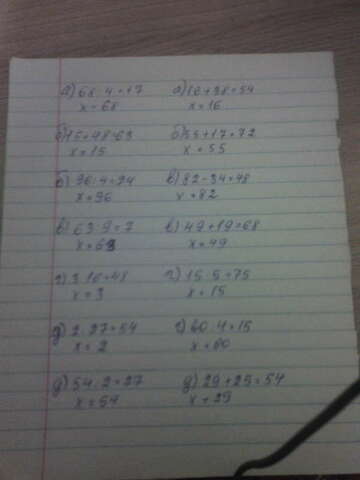 а) 68:4=17 а) 16+38=54
x=68 x=16
б) 15+48=63 б) 55+17=72
x=15 x=55
б) 96:4=24 в) 82-34=48
x=96 x=82
в) 63:9=7 в) 49+19=68
x=63 x=49
г) 3·16=48 г) 15·5=75
x=3 x=15
д) 2·27=54 г) 60:4=15
x=2 x=60
д) 54:2=27 д) 29+25=54
x=54 x=29